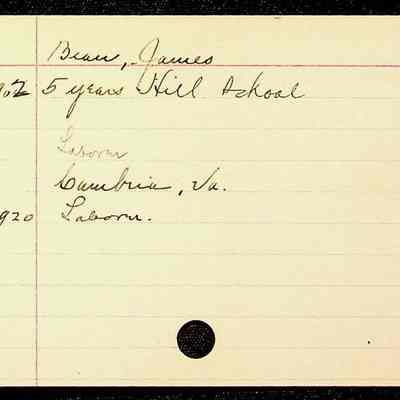 Bean, James
902 5 years Hill School
Laborer
Cambria, Va.
920 Laborer.